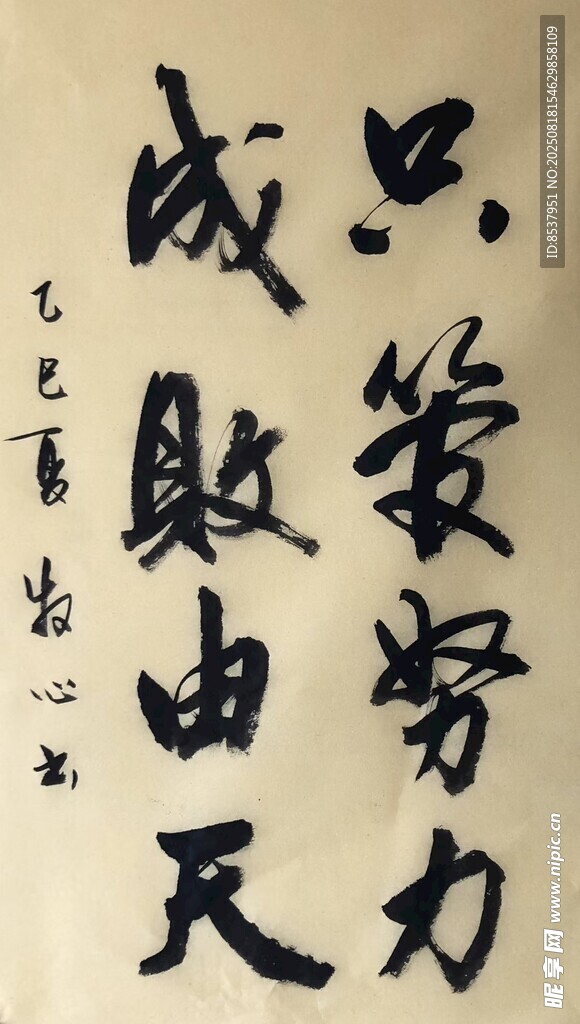 只策努力
成敗由天
乙巳夏 牧心书
ID:8537951 NO:20250818154629858109
昵享网 www.nipic.cn